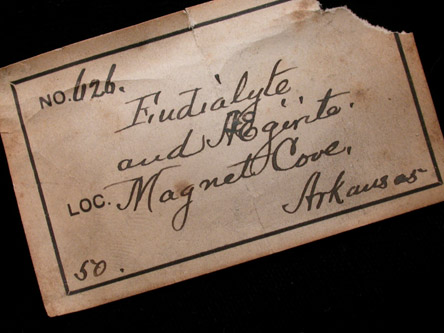 NO. 626.
Eudialyte
and Ægirite.
LOC. Magnet Cove,
Arkansas
50.